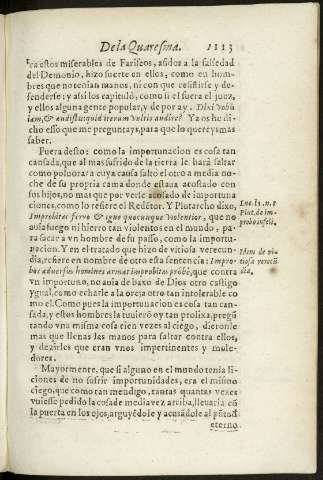 De la Quaresma. 1113
tra estos miserables de Fariseos, asidos a la falsedad
del Demonio, hizo suerte en ellos, como en hom-
bres que no tenian manos, ni con que resistirse y de-
fenderse: y assi los capituló, como si el fuera el juez,
y ellos alguna gente popular, y de por ay. Dixi vobis
iam, & audistis: quid iterum vultis audire? Ya os he di-
cho esso que me preguntays, para que lo quereys mas
saber.
Fuera desto: como la importunacion es cosa tan
cansada, que al mas sufrido de la tierra le hará saltar
como poluora: a cuya causa salto el otro a media no-
che de su propria cama donde estaua acostado con
sus hijos, no mas que por verse acosado de importuna
ciones, como lo refiere el Redētor. Y Plutarcho dixo,
Luc. 11. n. 8
Plut. de im-
Improbitas ferro & igne quocunque violentior, que no
probo infeli.
auia fuego ni hierro tan violentos en el mundo, pa-
ra sacar a vn hombre de su passo, como la importu-
nacion. Y en el tratado que hizo de vitiosa verecun-
Idem de vi-
dia, refiere en nombre de otro esta sentencia: Impro-
tiosa verecū
bos aduersus homines armat improbitas probè, que contra
dia.
vn importuno, no auia de baxo de Dios otro castigo
ygual, como echarle a la oreja otro tan intolerable co
mo el. Como pues la importunacion es cosa tan can-
sada, y estos hombres la tuuieró oy tan prolixa, pregū
tando vna misma cosa cien vezes al ciego, dieronle
mas que llenas las manos para saltar contra ellos,
y dezirles que eran vnos impertinentes y mole-
dores.
Mayormente, que si alguno en el mundo tenia li-
ciones de no sufrir importunidades, era el mismo
ciego, que como tan mendigo, tantas quantas vezes
vuiesse pedido la cosa de media vez arriba, lleuaria cō
la puerta en los ojos, arguyēdole y acusādole al pūto d
eterno